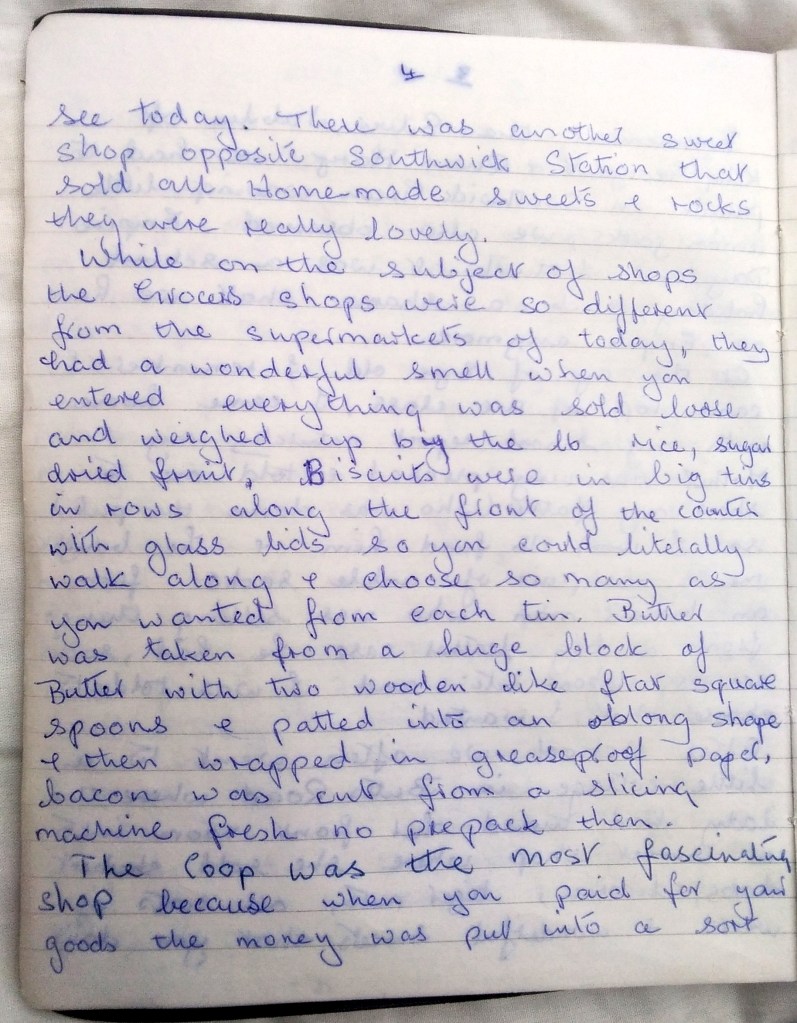 4
see today. There was another sweet
shop opposite Southwick Station that
sold all Home-made sweets & rocks
they were really lovely.
While on the subject of shops
the Grocers shops were so different
from the supermarkets of today, they
had a wonderful smell when you
entered everything was sold loose
and weighed up by the lb rice, sugar
dried fruit, Biscuits were in big tins
in rows along the front of the counter
with glass lids so you could literally
walk along & choose so many as
you wanted from each tin. Butter
was taken from a huge block of
Butter with two wooden like flat square
spoons & patted into an oblong shape
& then wrapped in greaseproof paper,
bacon was cut from a slicing
machine fresh no prepack then.
The Coop was the most fascinating
shop because when you paid for your
goods the money was put into a sort